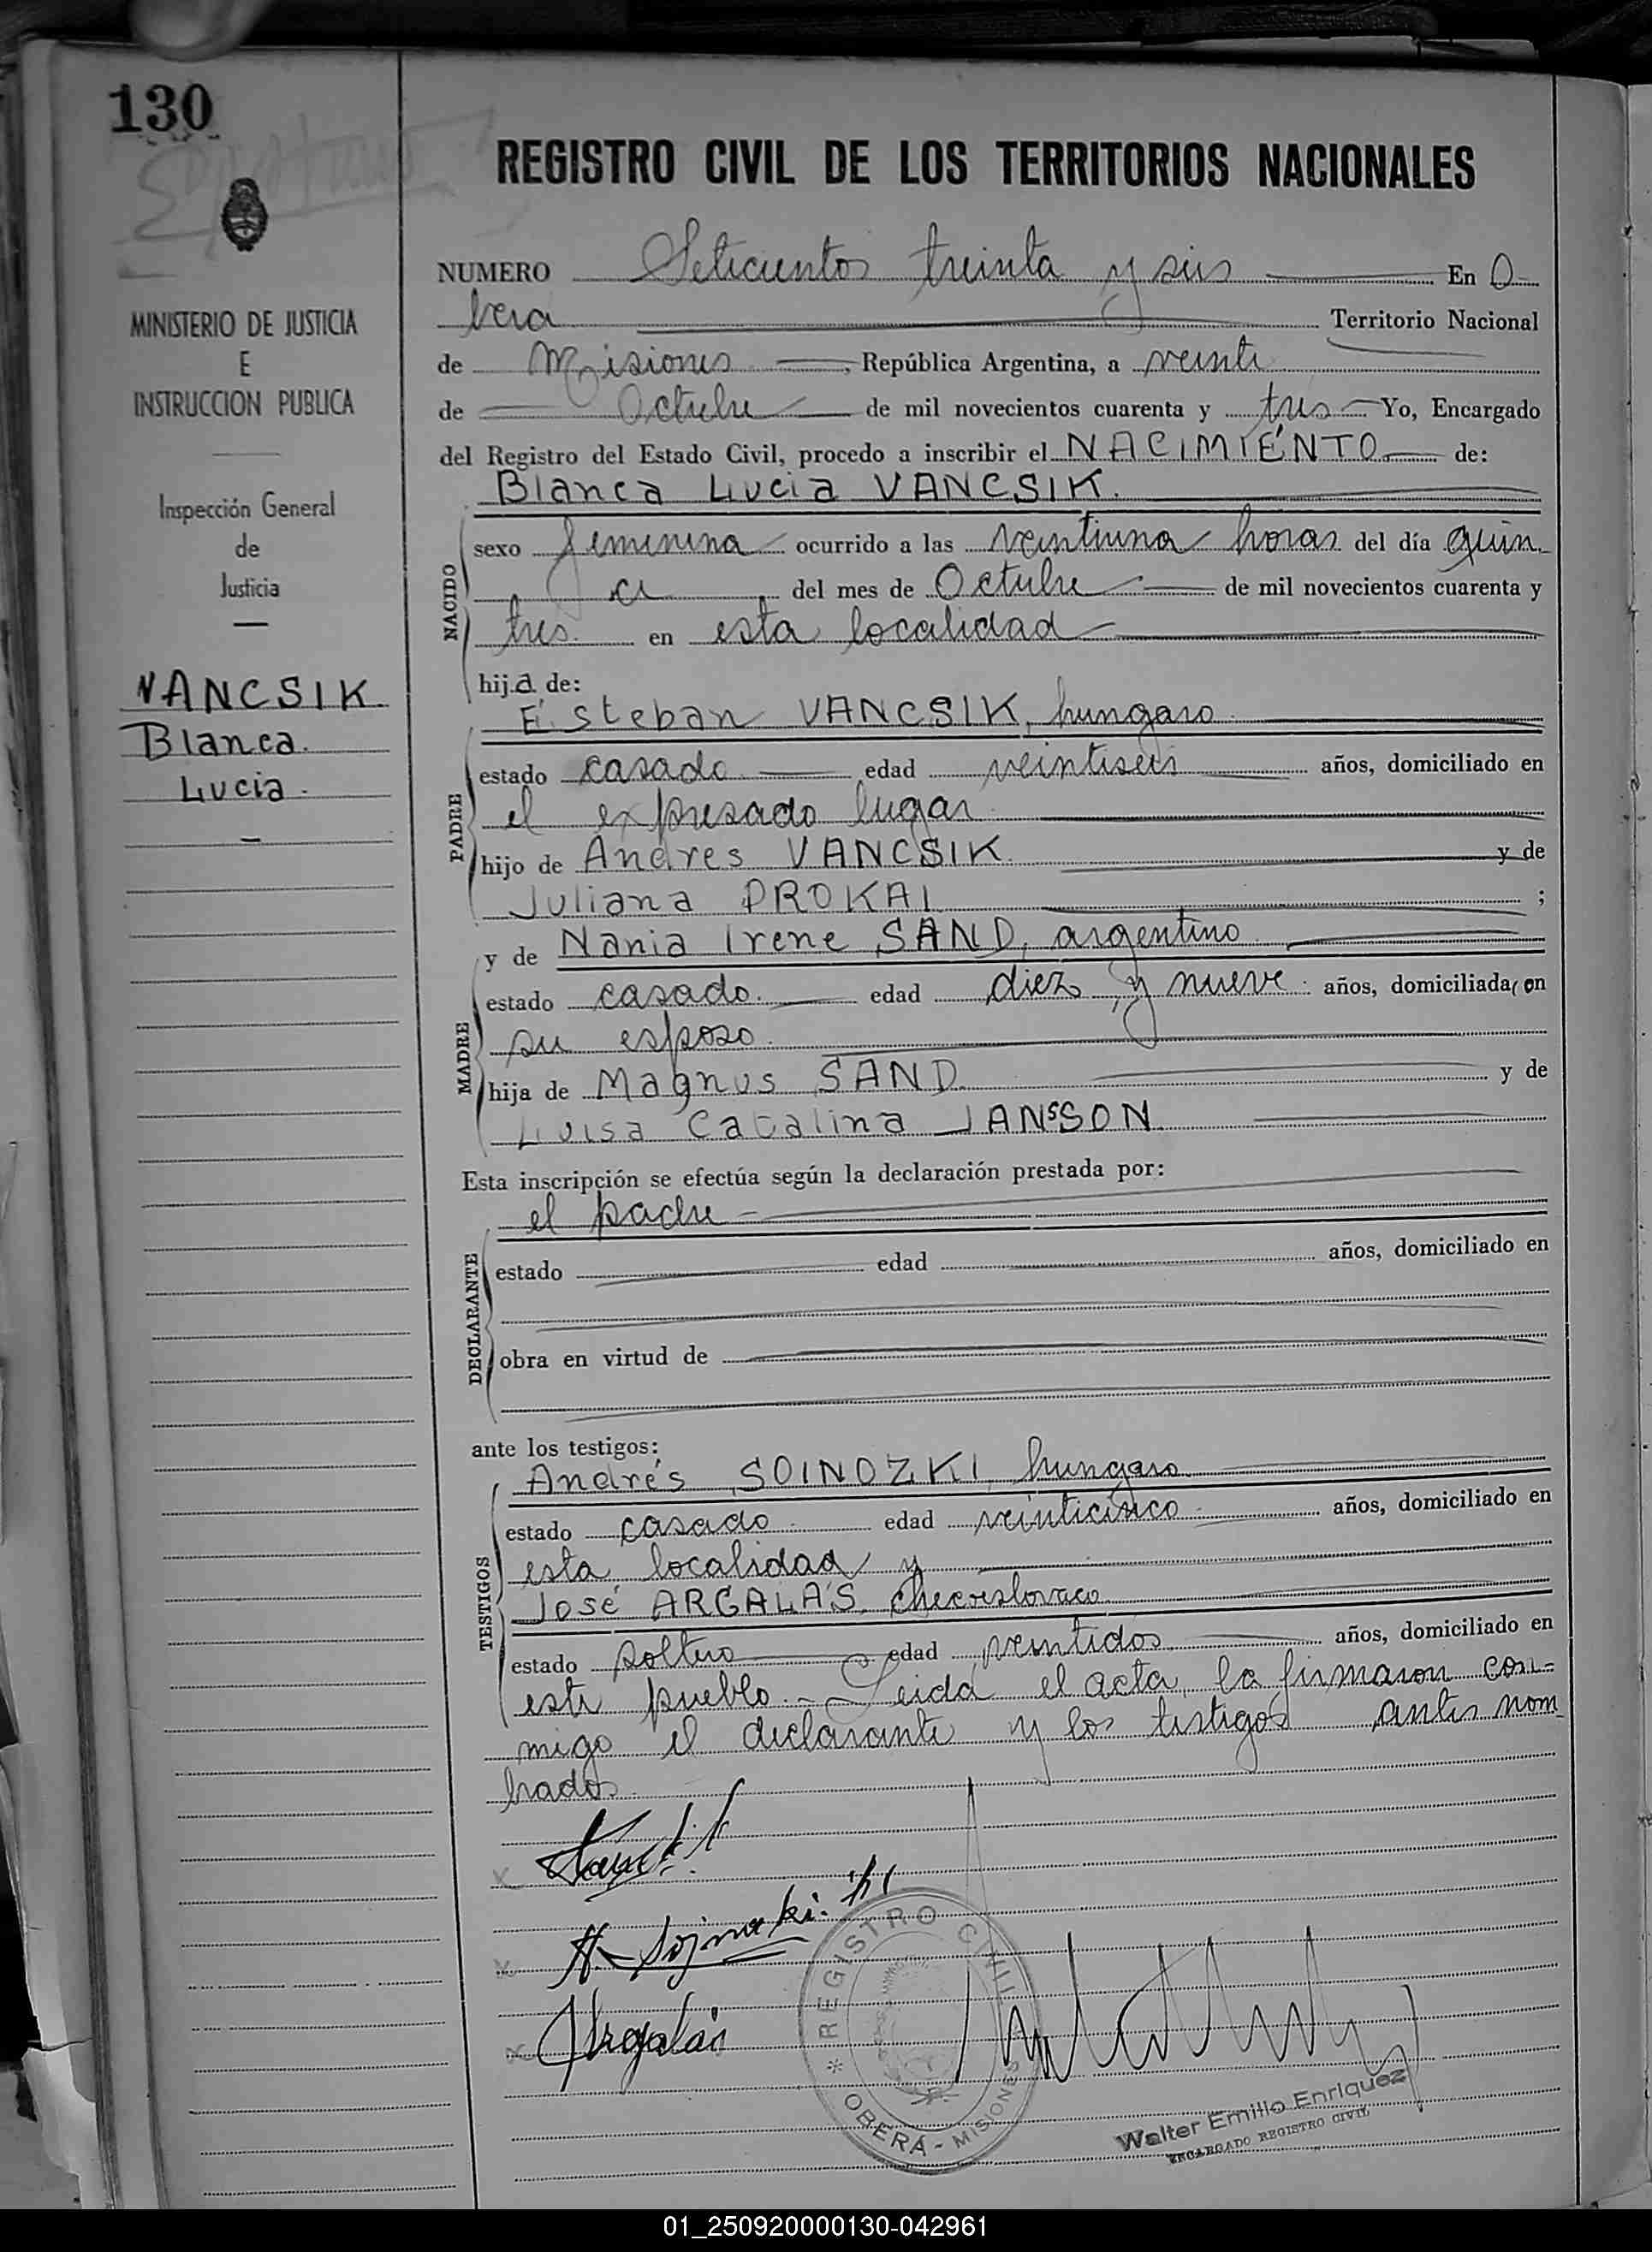 130
REGISTRO CIVIL DE LOS TERRITORIOS NACIONALES
MINISTERIO DE JUSTICIA
E
INSTRUCCION PUBLICA
Inspección General
de
Justicia
VANCSIK
Blanca
Lucia.
NUMERO Seticientos treinta y seis En O-
bera Territorio Nacional
de Misiones, República Argentina, a veinte
de Octubre de mil novecientos cuarenta y tres Yo, Encargado
del Registro del Estado Civil, procedo a inscribir el NACIMIENTO de:
Blanca Lucia VANCSIK.
NACIDO
sexo femenina ocurrido a las veintiuna horas del día quin-
ce del mes de Octubre de mil novecientos cuarenta y
tres en esta localidad
hija de:
Esteban VANCSIK, hungaro
PADRE
estado casado edad veintiseis años, domiciliado en
el expresado lugar
hijo de Andres VANCSIK y de
Juliana PROKAI ;
y de Nania Irene SAND, argentino
MADRE
estado casado. edad diez y nueve. años, domiciliada con
su esposo.
hija de Magnus SAND y de
Luisa Catalina JANSSON
Esta inscripción se efectúa según la declaración prestada por:
el padre
DECLARANTE
estado edad años, domiciliado en
obra en virtud de
ante los testigos:
Andrés SOINOZKI, hungaro
TESTIGOS
estado casado edad veinticinco años, domiciliado en
esta localidad y
José ARGALAS, checoeslovaco
estado soltero edad veintidos años, domiciliado en
este pueblo.- Leida el acta, la firmaron con-
migo el declarante y los testigos antes nom
brados.
Argalás
REGISTRO CIVIL
* OBERA - MISIONES
Walter Emilio Enriquez
ENCARGADO REGISTRO CIVIL
01_250920000130-042961